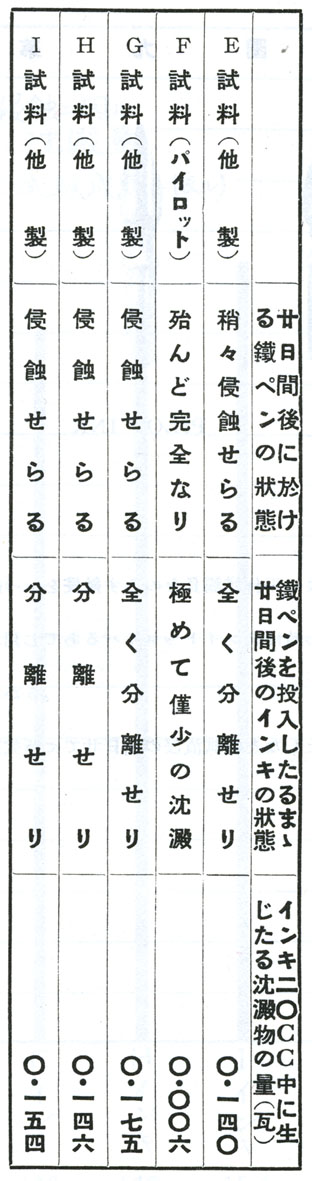 廿日間後に於け
る鐵ペンの狀態
鐵ペンを投入したるまゝ
廿日間後のインキの狀態
インキ二〇CC中に生
じたる沈澱物の量(瓦)
E試料(他製)
稍々侵蝕せらる
全く分離せり
〇・一四〇
F試料(パイロット)
殆んど完全なり
極めて僅少の沈澱
〇・〇〇六
G試料(他製)
侵蝕せらる
全く分離せり
〇・一七五
H試料(他製)
侵蝕せらる
分離せり
〇・一四六
I試料(他製)
侵蝕せらる
分離せり
〇・一五四